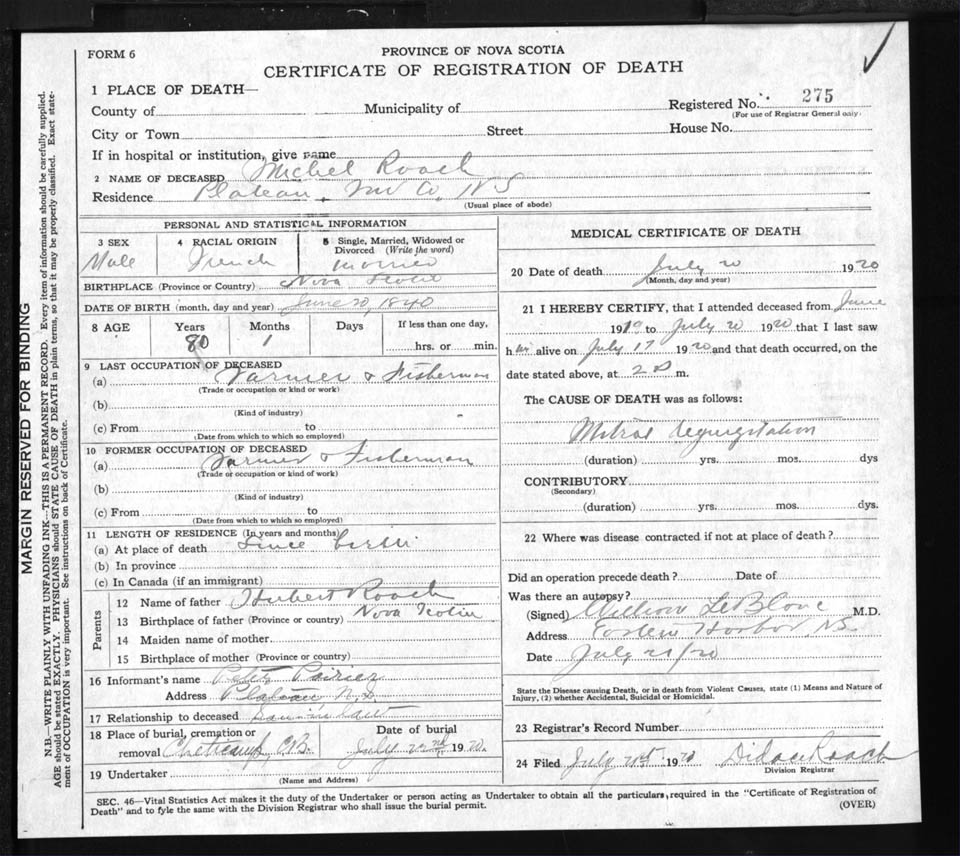 FORM 6
PROVINCE OF NOVA SCOTIA
CERTIFICATE OF REGISTRATION OF DEATH
1 PLACE OF DEATH—
County of Municipality of Registered No. 275
(For use of Registrar General only.
City or Town Street House No.
If in hospital or institution, give name
2 NAME OF DECEASED Michel Roach
Residence Plateau, Inv Co, NS
(Usual place of abode)
PERSONAL AND STATISTICAL INFORMATION
3 SEX 4 RACIAL ORIGIN 5 Single, Married, Widowed or
Divorced (Write the word)
Male French Married
BIRTHPLACE (Province or Country) Nova Scotia
DATE OF BIRTH (month, day and year) June 20, 1840
8 AGE Years Months Days If less than one day,
80 1 hrs. or min.
9 LAST OCCUPATION OF DECEASED
(a) Farmer & Fisherman
(Trade or occupation or kind or work)
(b)
(Kind of industry)
(c) From to
(Date from which to which so employed)
10 FORMER OCCUPATION OF DECEASED
(a) Farmer & Fisherman
(Trade or occupation or kind of work)
(b)
(Kind of industry)
(c) From to
(Date from which to which so employed)
11 LENGTH OF RESIDENCE (In years and months)
(a) At place of death Since birth
(b) In province
(c) In Canada (if an immigrant)
Parents
12 Name of father Hubert Roach
13 Birthplace of father (Province or country) Nova Scotia
14 Maiden name of mother
15 Birthplace of mother (Province or country)
16 Informant's name Poirier
Address Plateau N.S.
17 Relationship to deceased Son in law
18 Place of burial, cremation or Date of burial
removal Cheticamp, C.B. July 22nd 1920.
19 Undertaker
(Name and Address)
MEDICAL CERTIFICATE OF DEATH
20 Date of death July 20 1920
(Month, day and year)
21 I HEREBY CERTIFY, that I attended deceased from June
19 to July 20 1920 that I last saw
him alive on July 17 1920 and that death occurred, on the
date stated above, at 2 m.
The CAUSE OF DEATH was as follows:
Mitral regurgitation
(duration) yrs. mos. dys
CONTRIBUTORY
(Secondary)
(duration) yrs. mos. dys.
22 Where was disease contracted if not at place of death?
Did an operation precede death? Date of
Was there an autopsy?
(Signed) LeBlanc M.D.
Address Eastern Harbor, NS
Date July 21/20
State the Disease causing Death, or in death from Violent Causes, state (1) Means and Nature of
Injury, (2) whether Accidental, Suicidal or Homicidal.
23 Registrar's Record Number
24 Filed July 21st 1920 Roach
Division Registrar
SEC. 46—Vital Statistics Act makes it the duty of the Undertaker or person acting as Undertaker to obtain all the particulars required in the "Certificate of Registration of
Death" and to fyle the same with the Division Registrar who shall issue the burial permit.
(OVER)
MARGIN RESERVED FOR BINDING
N.B.—WRITE PLAINLY WITH UNFADING INK—THIS IS A PERMANENT RECORD. Every item of information should be carefully supplied.
AGE should be stated EXACTLY. PHYSICIANS should STATE CAUSE OF DEATH in plain terms, so that it may be properly classified. Exact state-
ment of OCCUPATION is very important. See instructions on back of Certificate.